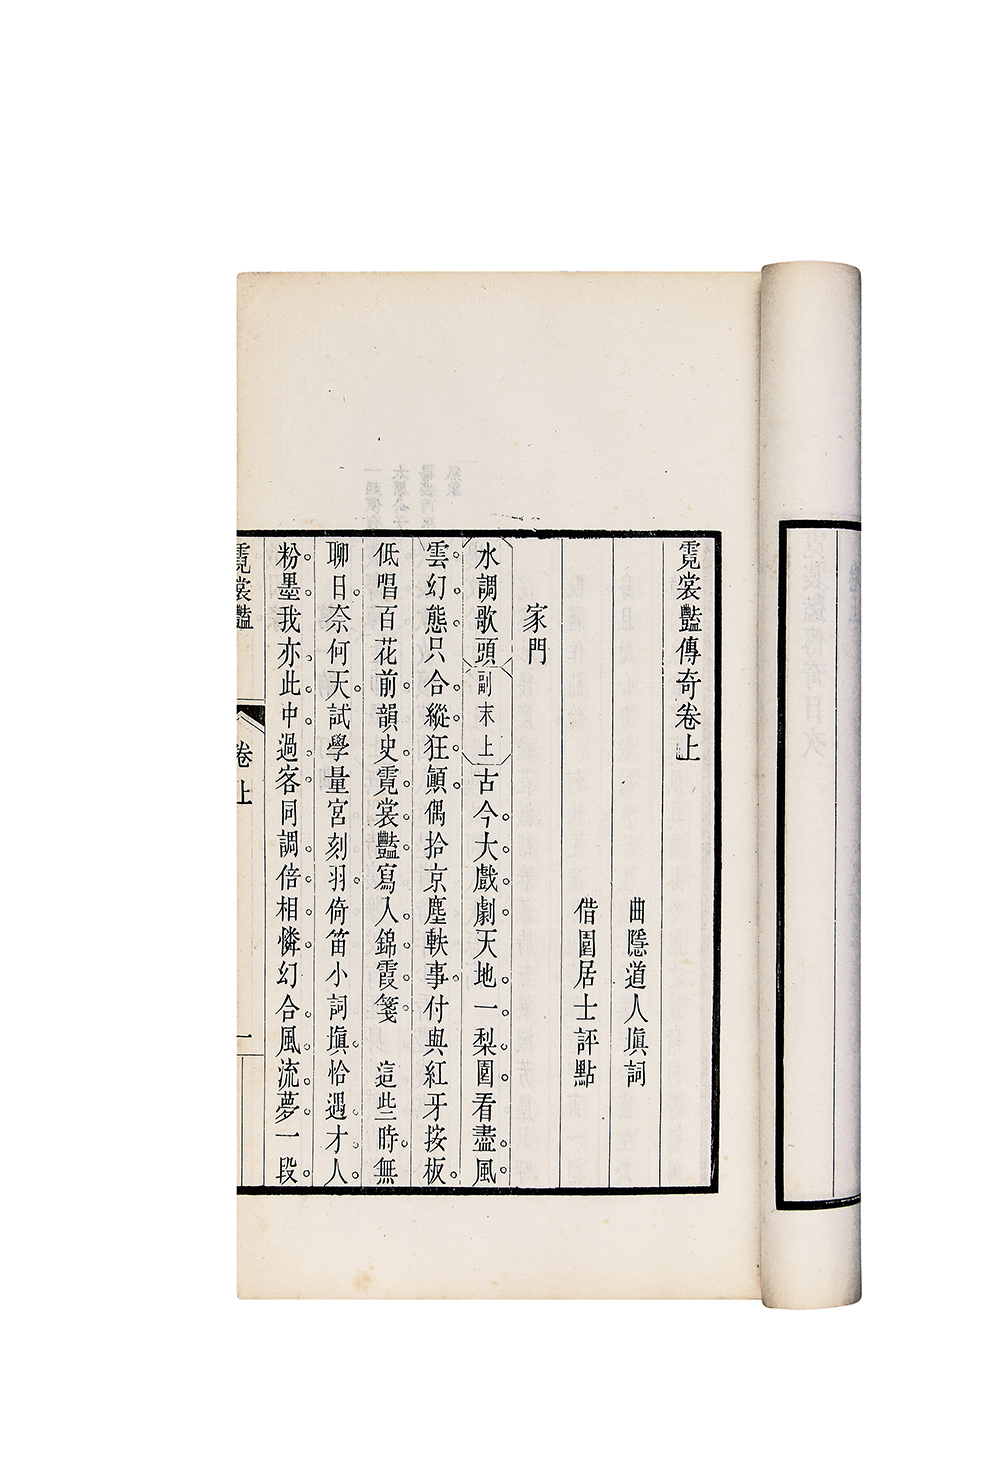 霓裳豔傳奇卷上
曲隱道人塡詞
借園居士評點
家門
水調歌頭副末上古今大戲劇天地一梨園看盡風
雲幻態只合縱狂顚偶拾京塵軼事付與紅牙按板
低唱百花前韻史霓裳豔寫入錦霞箋　這些時無
聊日奈何天試學量宮刻羽倚笛小詞塡恰遇才人
粉墨我亦此中過客同調倍相憐幻合風流夢一段
霓裳豔
卷上
一